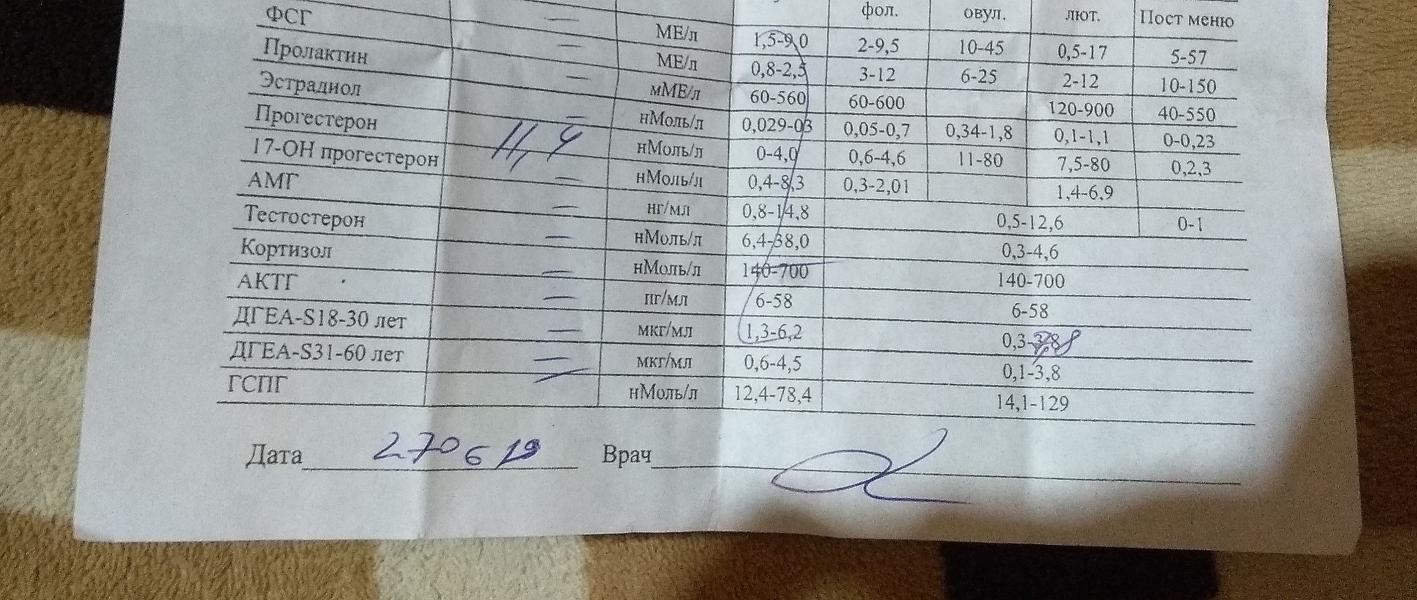 фол. овул. лют. Пост меню
МЕ/л 1,5-9,0 2-9,5 10-45 0,5-17 5-57
ФСГ — МЕ/л 0,8-2,5 3-12 6-25 2-12 10-150
Пролактин — мМЕ/л 60-560 60-600 120-900 40-550
Эстрадиол — нМоль/л 0,029-03 0,05-0,7 0,34-1,8 0,1-1,1 0-0,23
Прогестерон 11,4 нМоль/л 0-4,0 0,6-4,6 11-80 7,5-80 0,2,3
17-ОН прогестерон — нМоль/л 0,4-8,3 0,3-2,01 1,4-6,9
АМГ — нг/мл 0,8-14,8 0,5-12,6 0-1
Тестостерон — нМоль/л 6,4-38,0 0,3-4,6
Кортизол — нМоль/л 140-700 140-700
АКТГ — пг/мл 6-58 6-58
ДГЕА-S18-30 лет — мкг/мл 1,3-6,2 0,3-
ДГЕА-S31-60 лет — мкг/мл 0,6-4,5 0,1-3,8
ГСПГ — нМоль/л 12,4-78,4 14,1-129
Дата 270619 Врач